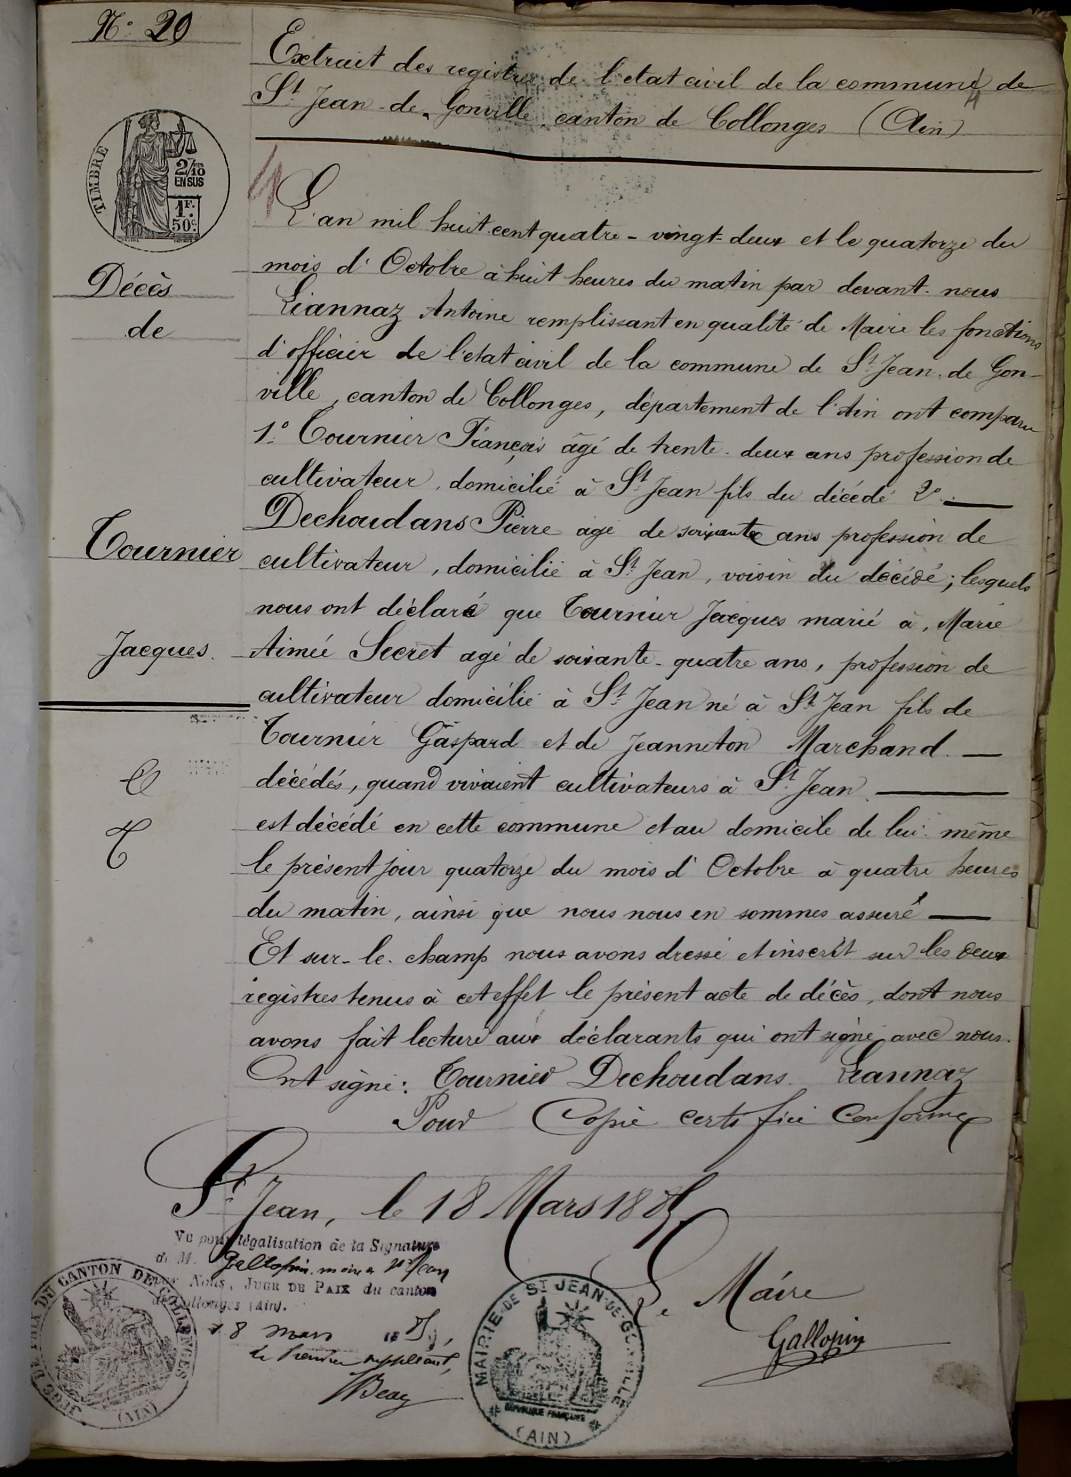 N° 29
Extrait des registres de l'etat civil de la commune de
St Jean-de-Gonville canton de Collonges (Ain)
TIMBRE
2/10
EN SUS
1F.
50c.
L'an mil huit cent quatre-vingt-deux et le quatorze du
mois d'Octobre à huit heures du matin par devant nous
Décès
Liannaz Antoine remplissant en qualité de Maire les fonctions
de
d'officier de l'etat civil de la commune de St Jean-de-Gon-
ville, canton de Collonges, département de l'Ain ont comparu
1° Tournier François âgé de trente-deux ans profession de
cultivateur, domicilié à St Jean fils du décédé 2°
Dechoudans Pierre âgé de soixante ans profession de
Tournier
cultivateur, domicilié à St Jean, voisin du décédé; lesquels
nous ont déclaré que Tournier Jacques marié à Marie
Jacques
Aimée Secret agé de soixante-quatre ans, profession de
cultivateur domicilié à St Jean né à St Jean fils de
Tournier Gaspard et de Jeanneton Marchand
décédés, quand vivaient cultivateurs à St Jean
est décédé en cette commune et au domicile de lui-même
le présent jour quatorze du mois d'Octobre à quatre heures
du matin, ainsi que nous nous en sommes assuré
Et sur-le-champ nous avons dressé et inscrit sur les deux
registres tenus à cet effet le présent acte de décès, dont nous
avons fait lecture aux déclarants qui ont signé avec nous.
Ont signé: Tournier Dechoudans Liannaz
Pour Copie certifiée Conforme
St Jean, le 18 Mars 188
Vu pour légalisation de la Signature
de M. Gallopin, maire St Jean
par Nous, JUGE DE PAIX du canton
de Collonges (Ain).
18 mars 188
le suppléant,
Le Maire
Gallopin
JUGE DE PAIX DU CANTON DE COLLONGES
(AIN)
MAIRIE DE ST JEAN-DE-GONVILLE
RÉPUBLIQUE FRANÇAISE
(AIN)